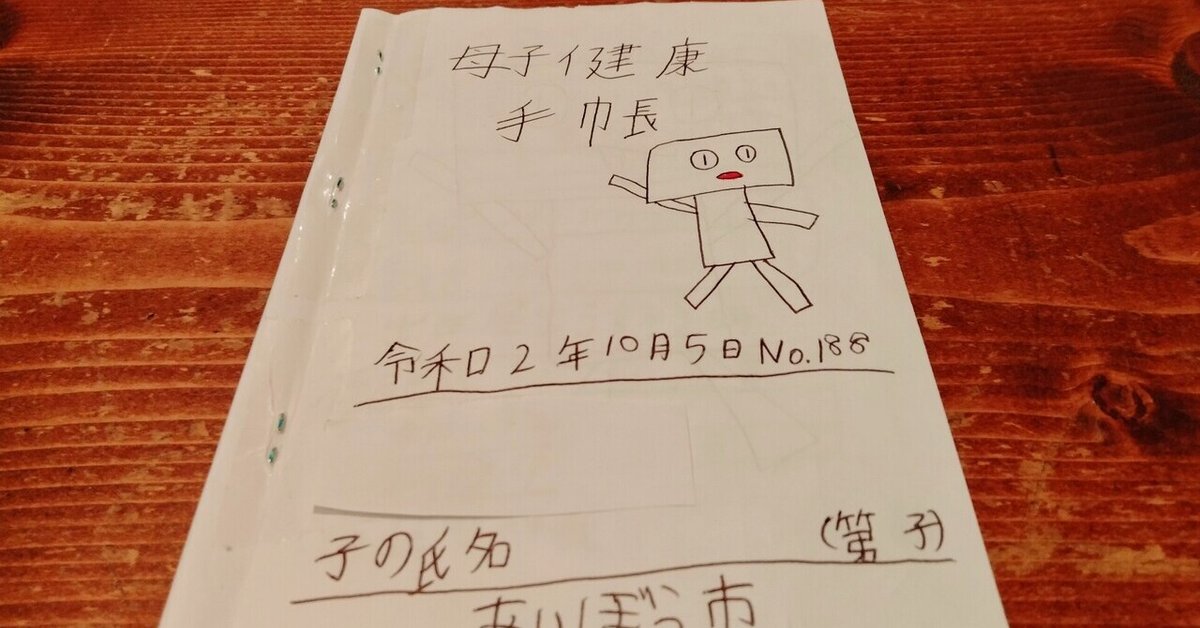 母子健康
手帳
令和2年10月5日 No.188
子の氏名
(第 子)
あいぼっ市